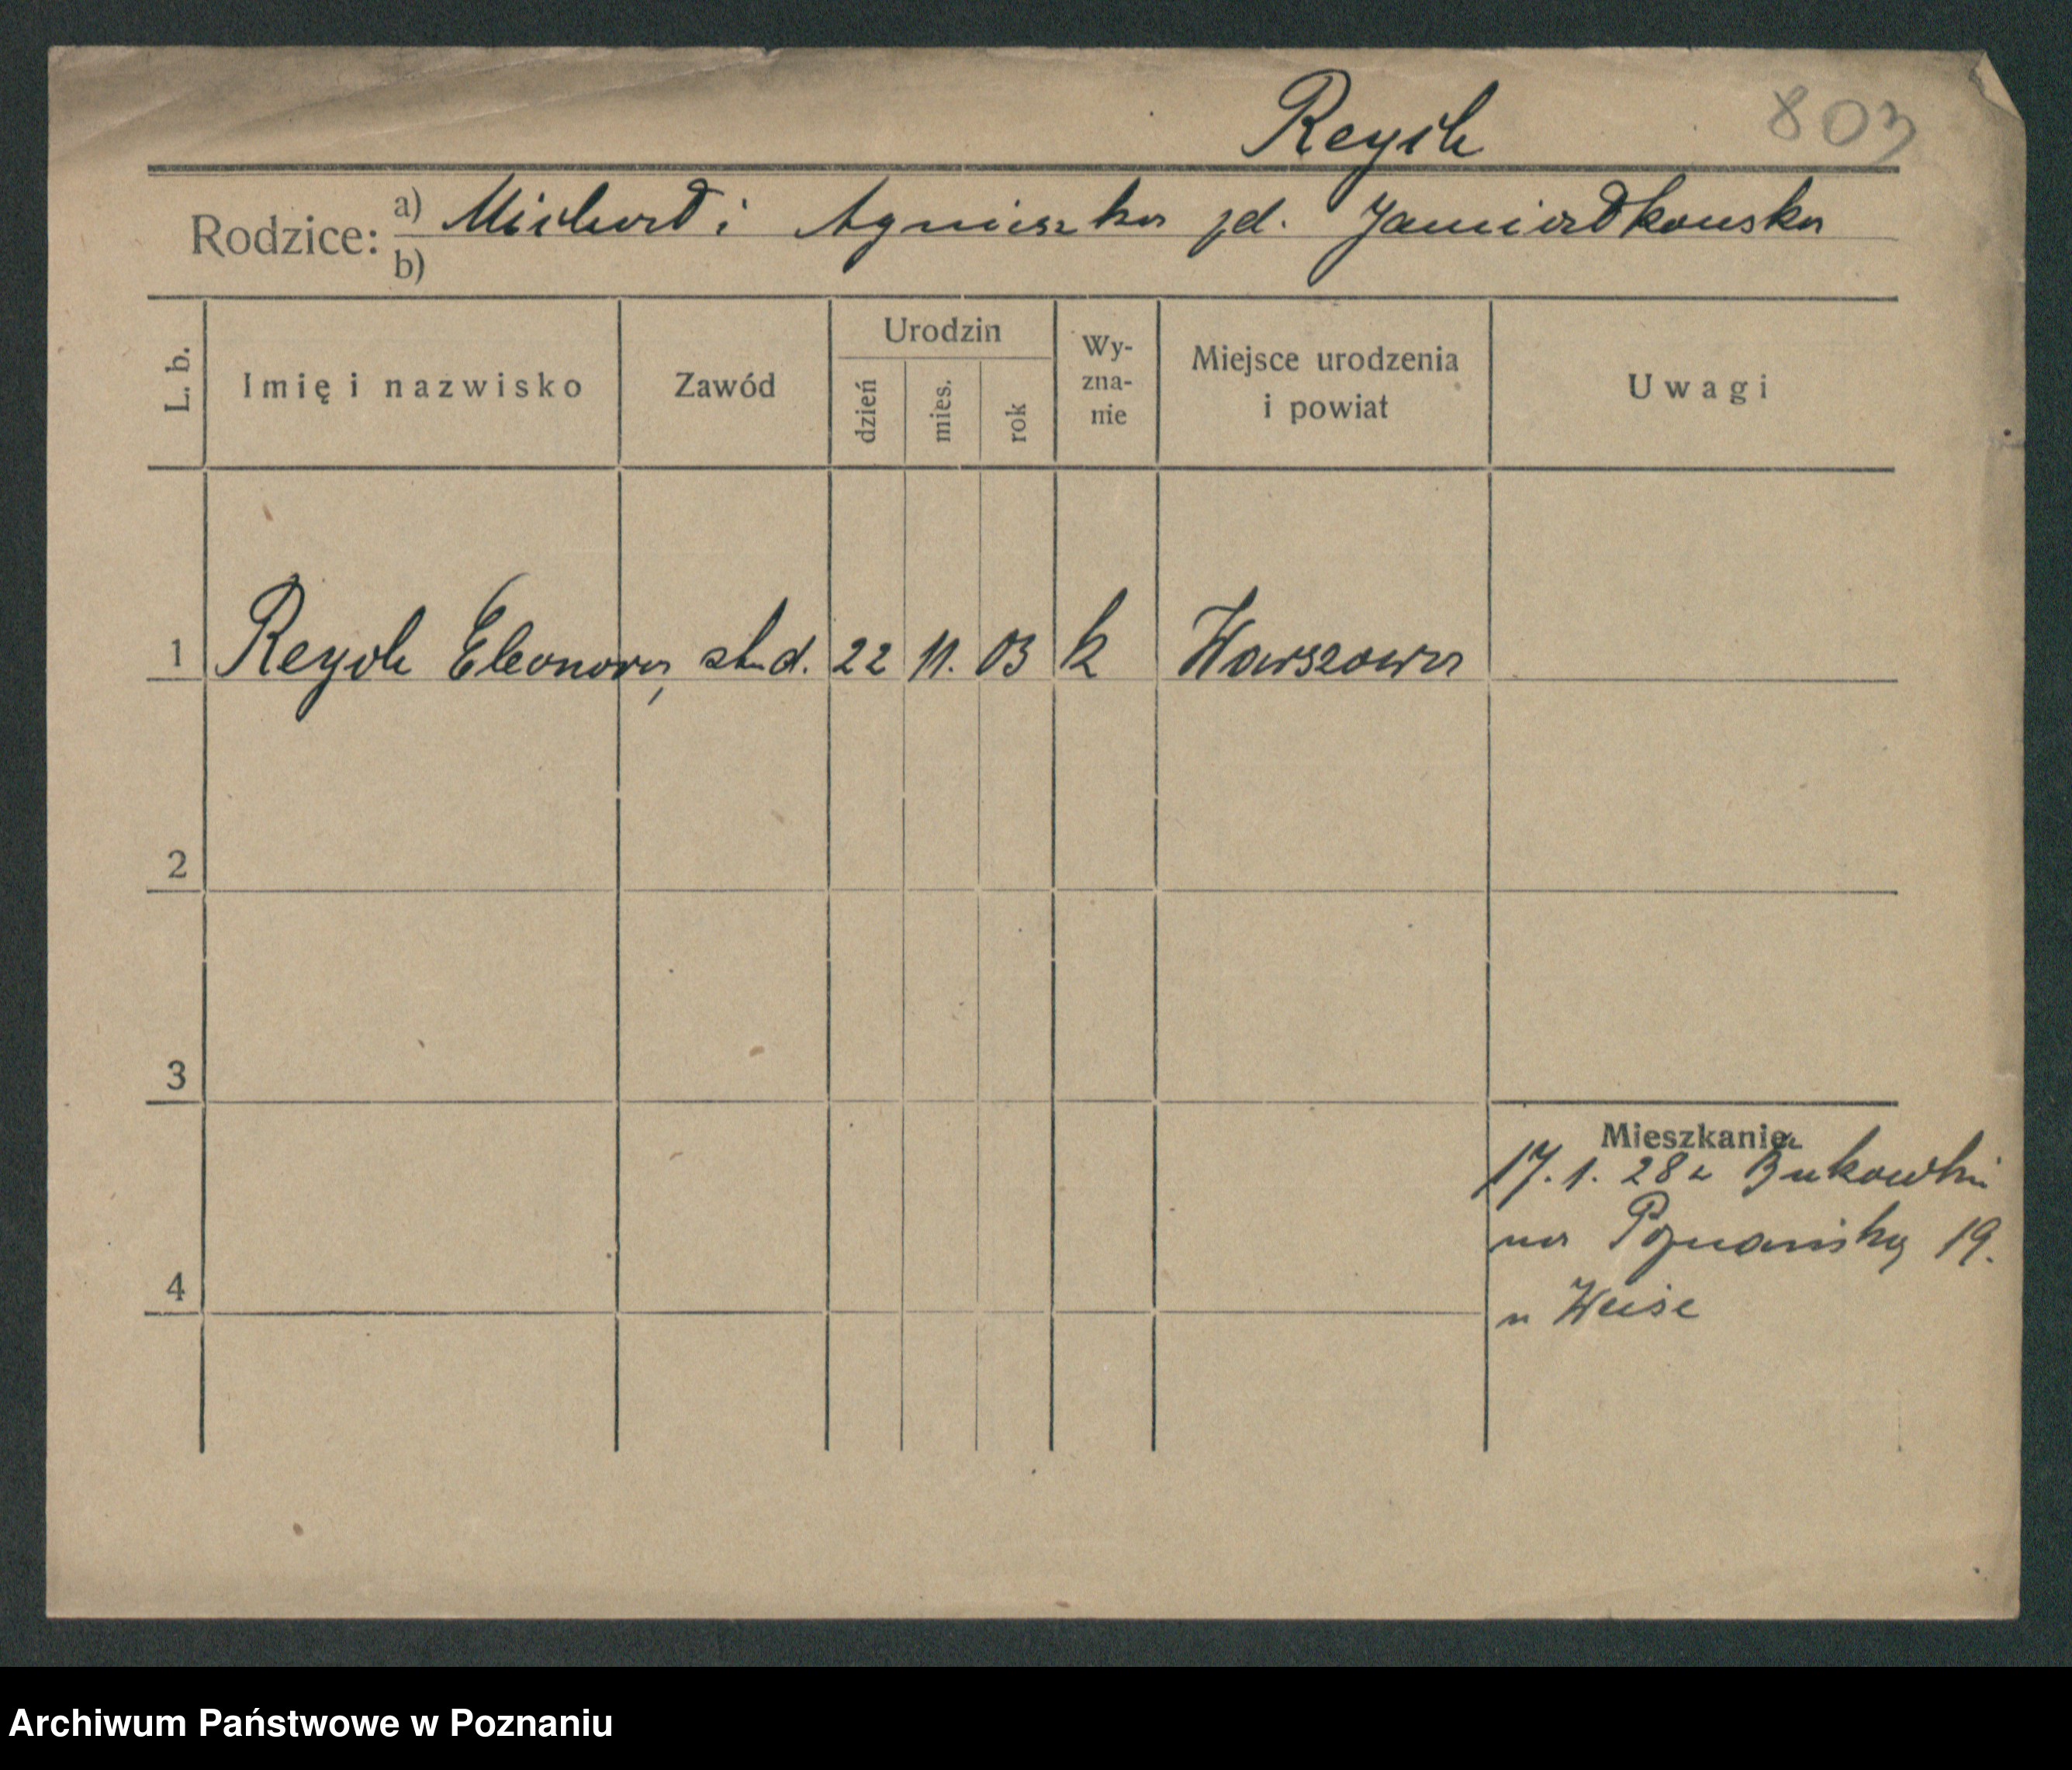 Reych 803
Rodzice: a) i Agnieszka zd.
b)
L. b. Imię i nazwisko Zawód Urodzin dzień mies. rok Wy-zna-nie Miejsce urodzenia i powiat Uwagi
1 Reych Eleonora, stud. 22 11. 03 k Warszawa
2
3
Mieszkanie
17. 1. 28 z
na Poznańską 19.
4
u Weise
Archiwum Państwowe w Poznaniu